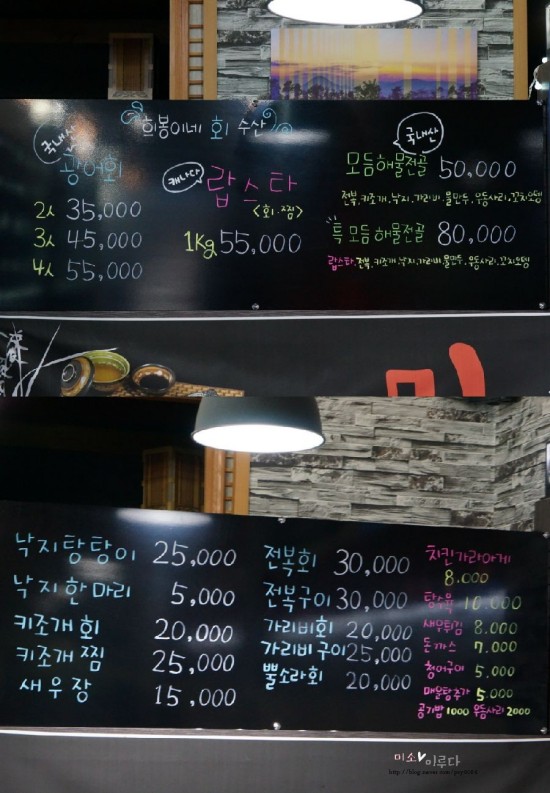 희봉이네 회 수산
국내산
광어회
2人 35,000
3人 45,000
4人 55,000
캐나다
랍스타
<회.찜>
1Kg 55,000
국내산
모듬해물전골 50,000
전복,키조개,낙지,가리비,물만두,우동사리,꼬치오뎅
특 모듬해물전골 80,000
랍스타,전복,키조개,낙지,가리비,물만두,우동사리,꼬치오뎅
낙지탕탕이 25,000
낙지한마리 5,000
키조개회 20,000
키조개찜 25,000
새우장 15,000
전복회 30,000
전복구이 30,000
가리비회 20,000
가리비구이 25,000
뿔소라회 20,000
치킨가라아게
8.000
탕수육 10.000
새우튀김 8.000
돈까스 7.000
청어구이 5.000
매운탕추가 5.000
공기밥 1000 우동사리 2000
미소♥이루다